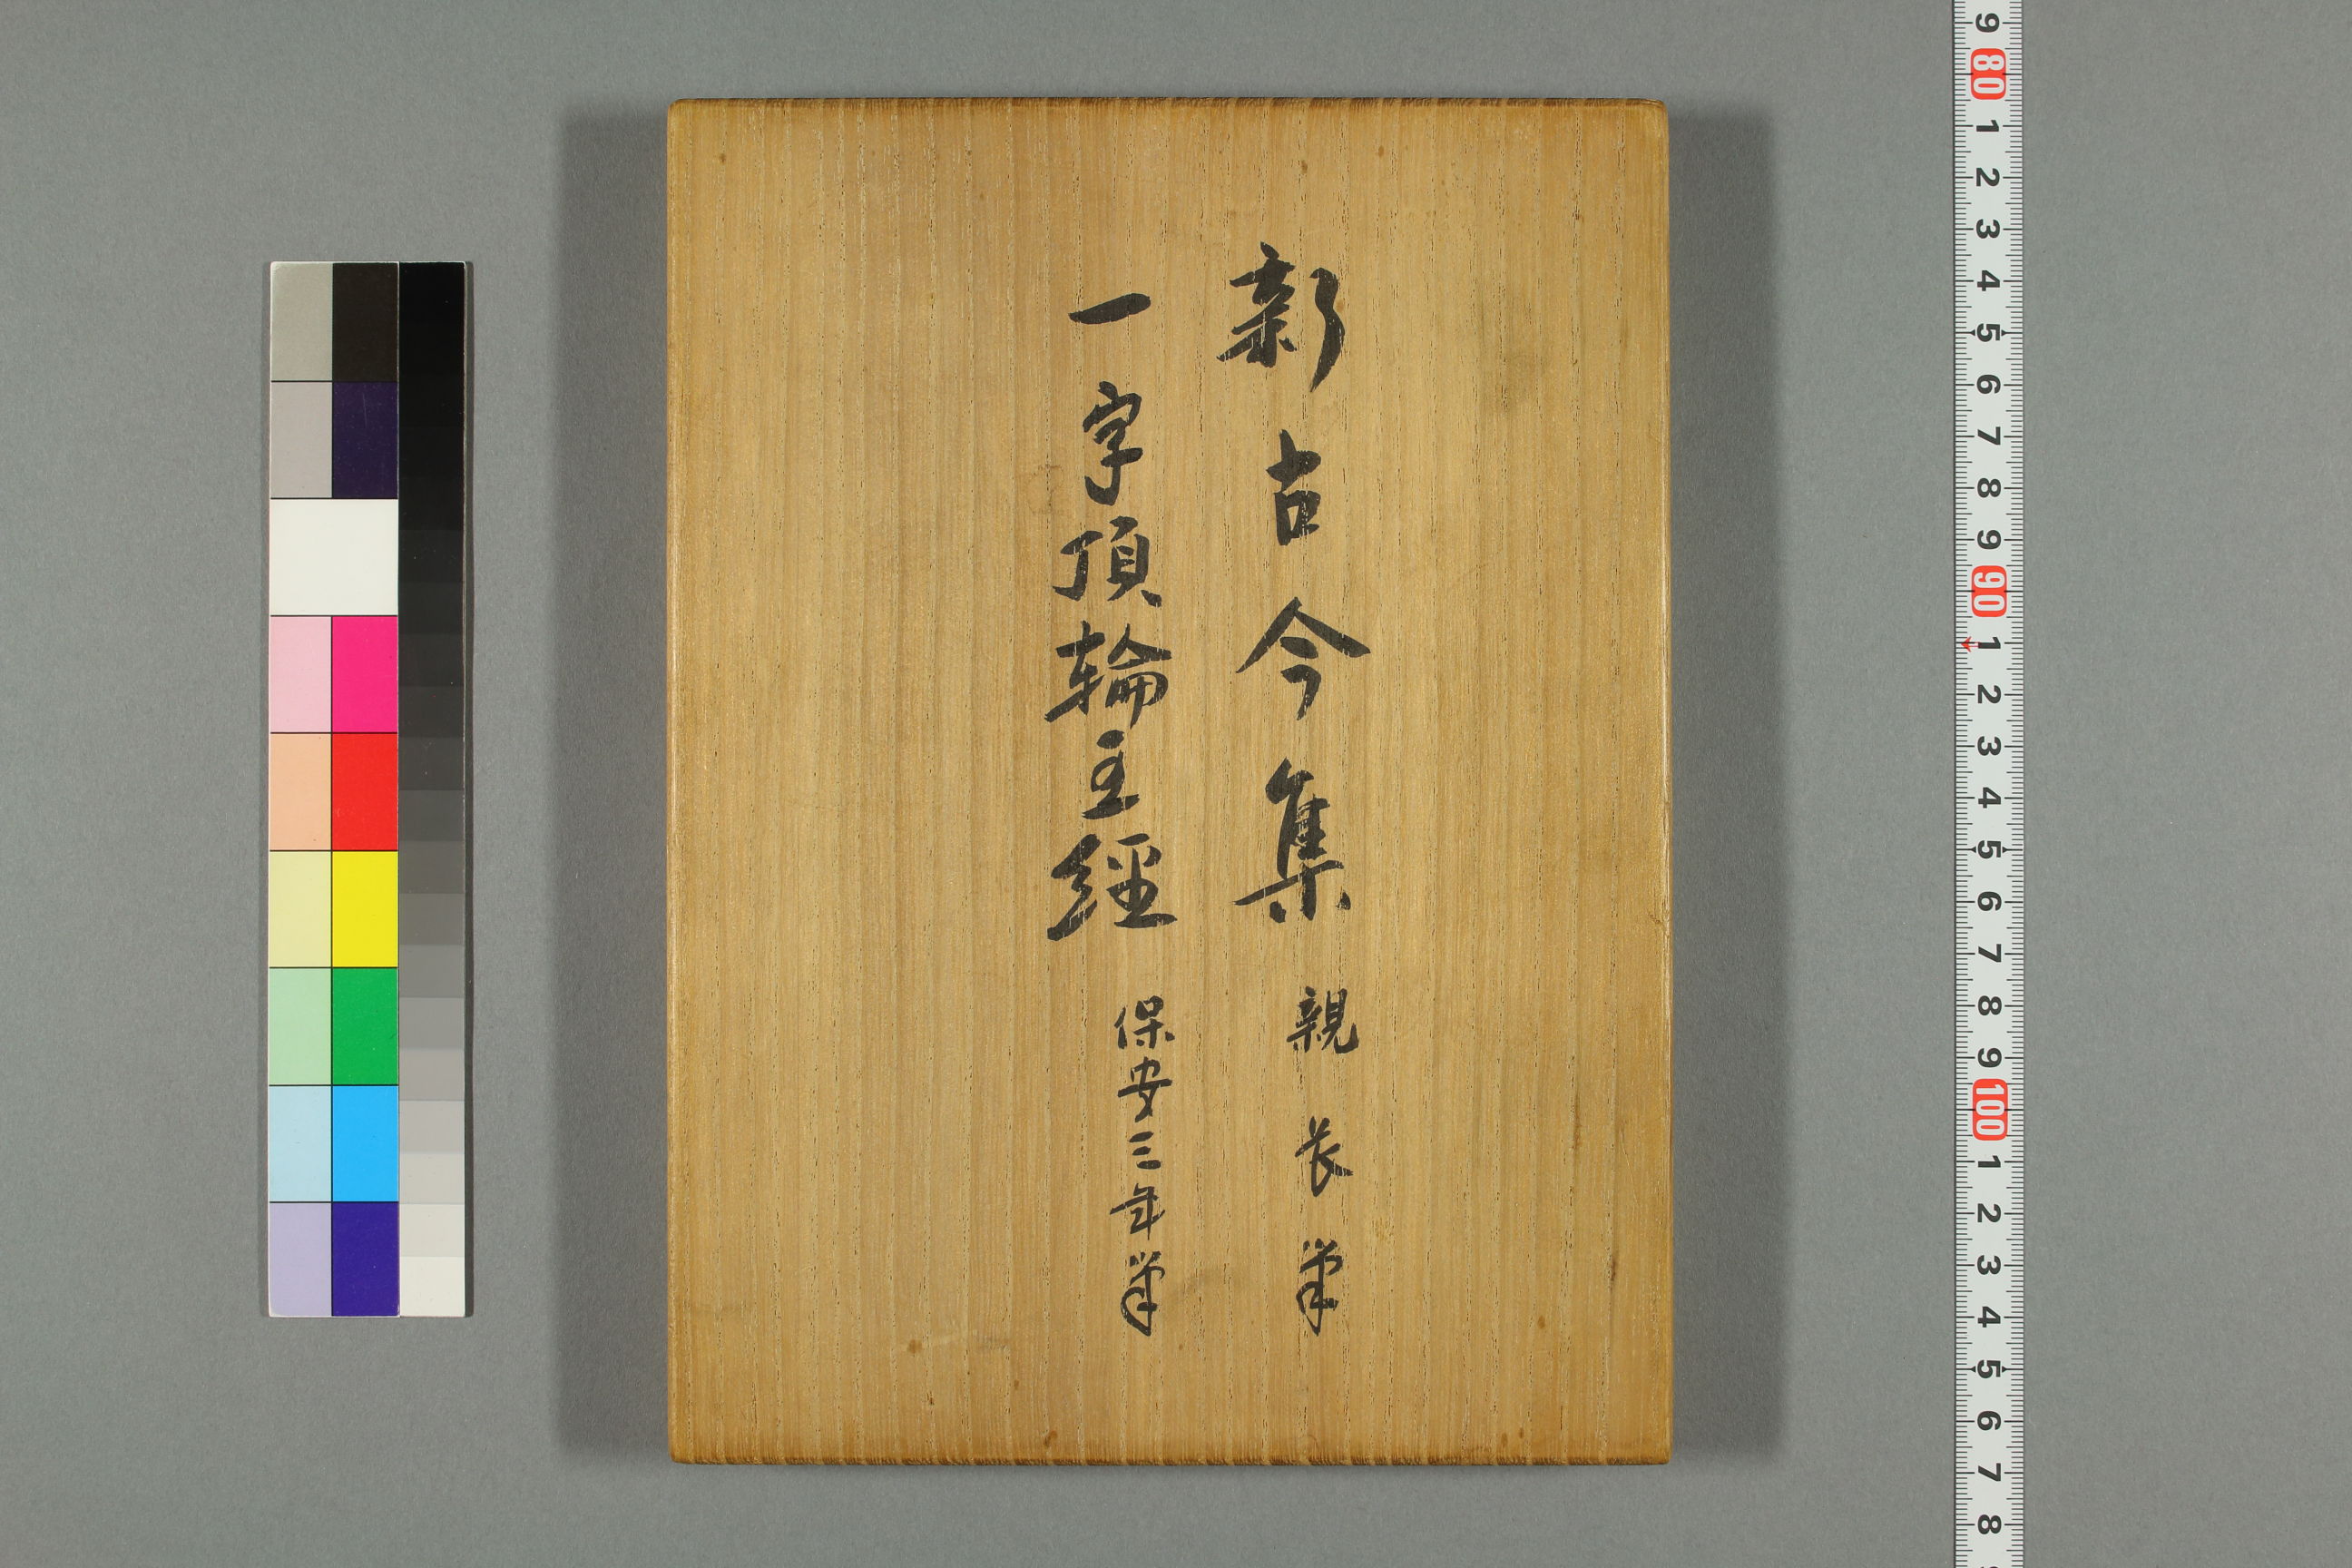 新古今集 親長筆
一字頂輪王経 保安三年筆
9 80 1 2 3 4 5 6 7 8 9 90 1 2 3 4 5 6 7 8 9 100 1 2 3 4 5 6 7 8